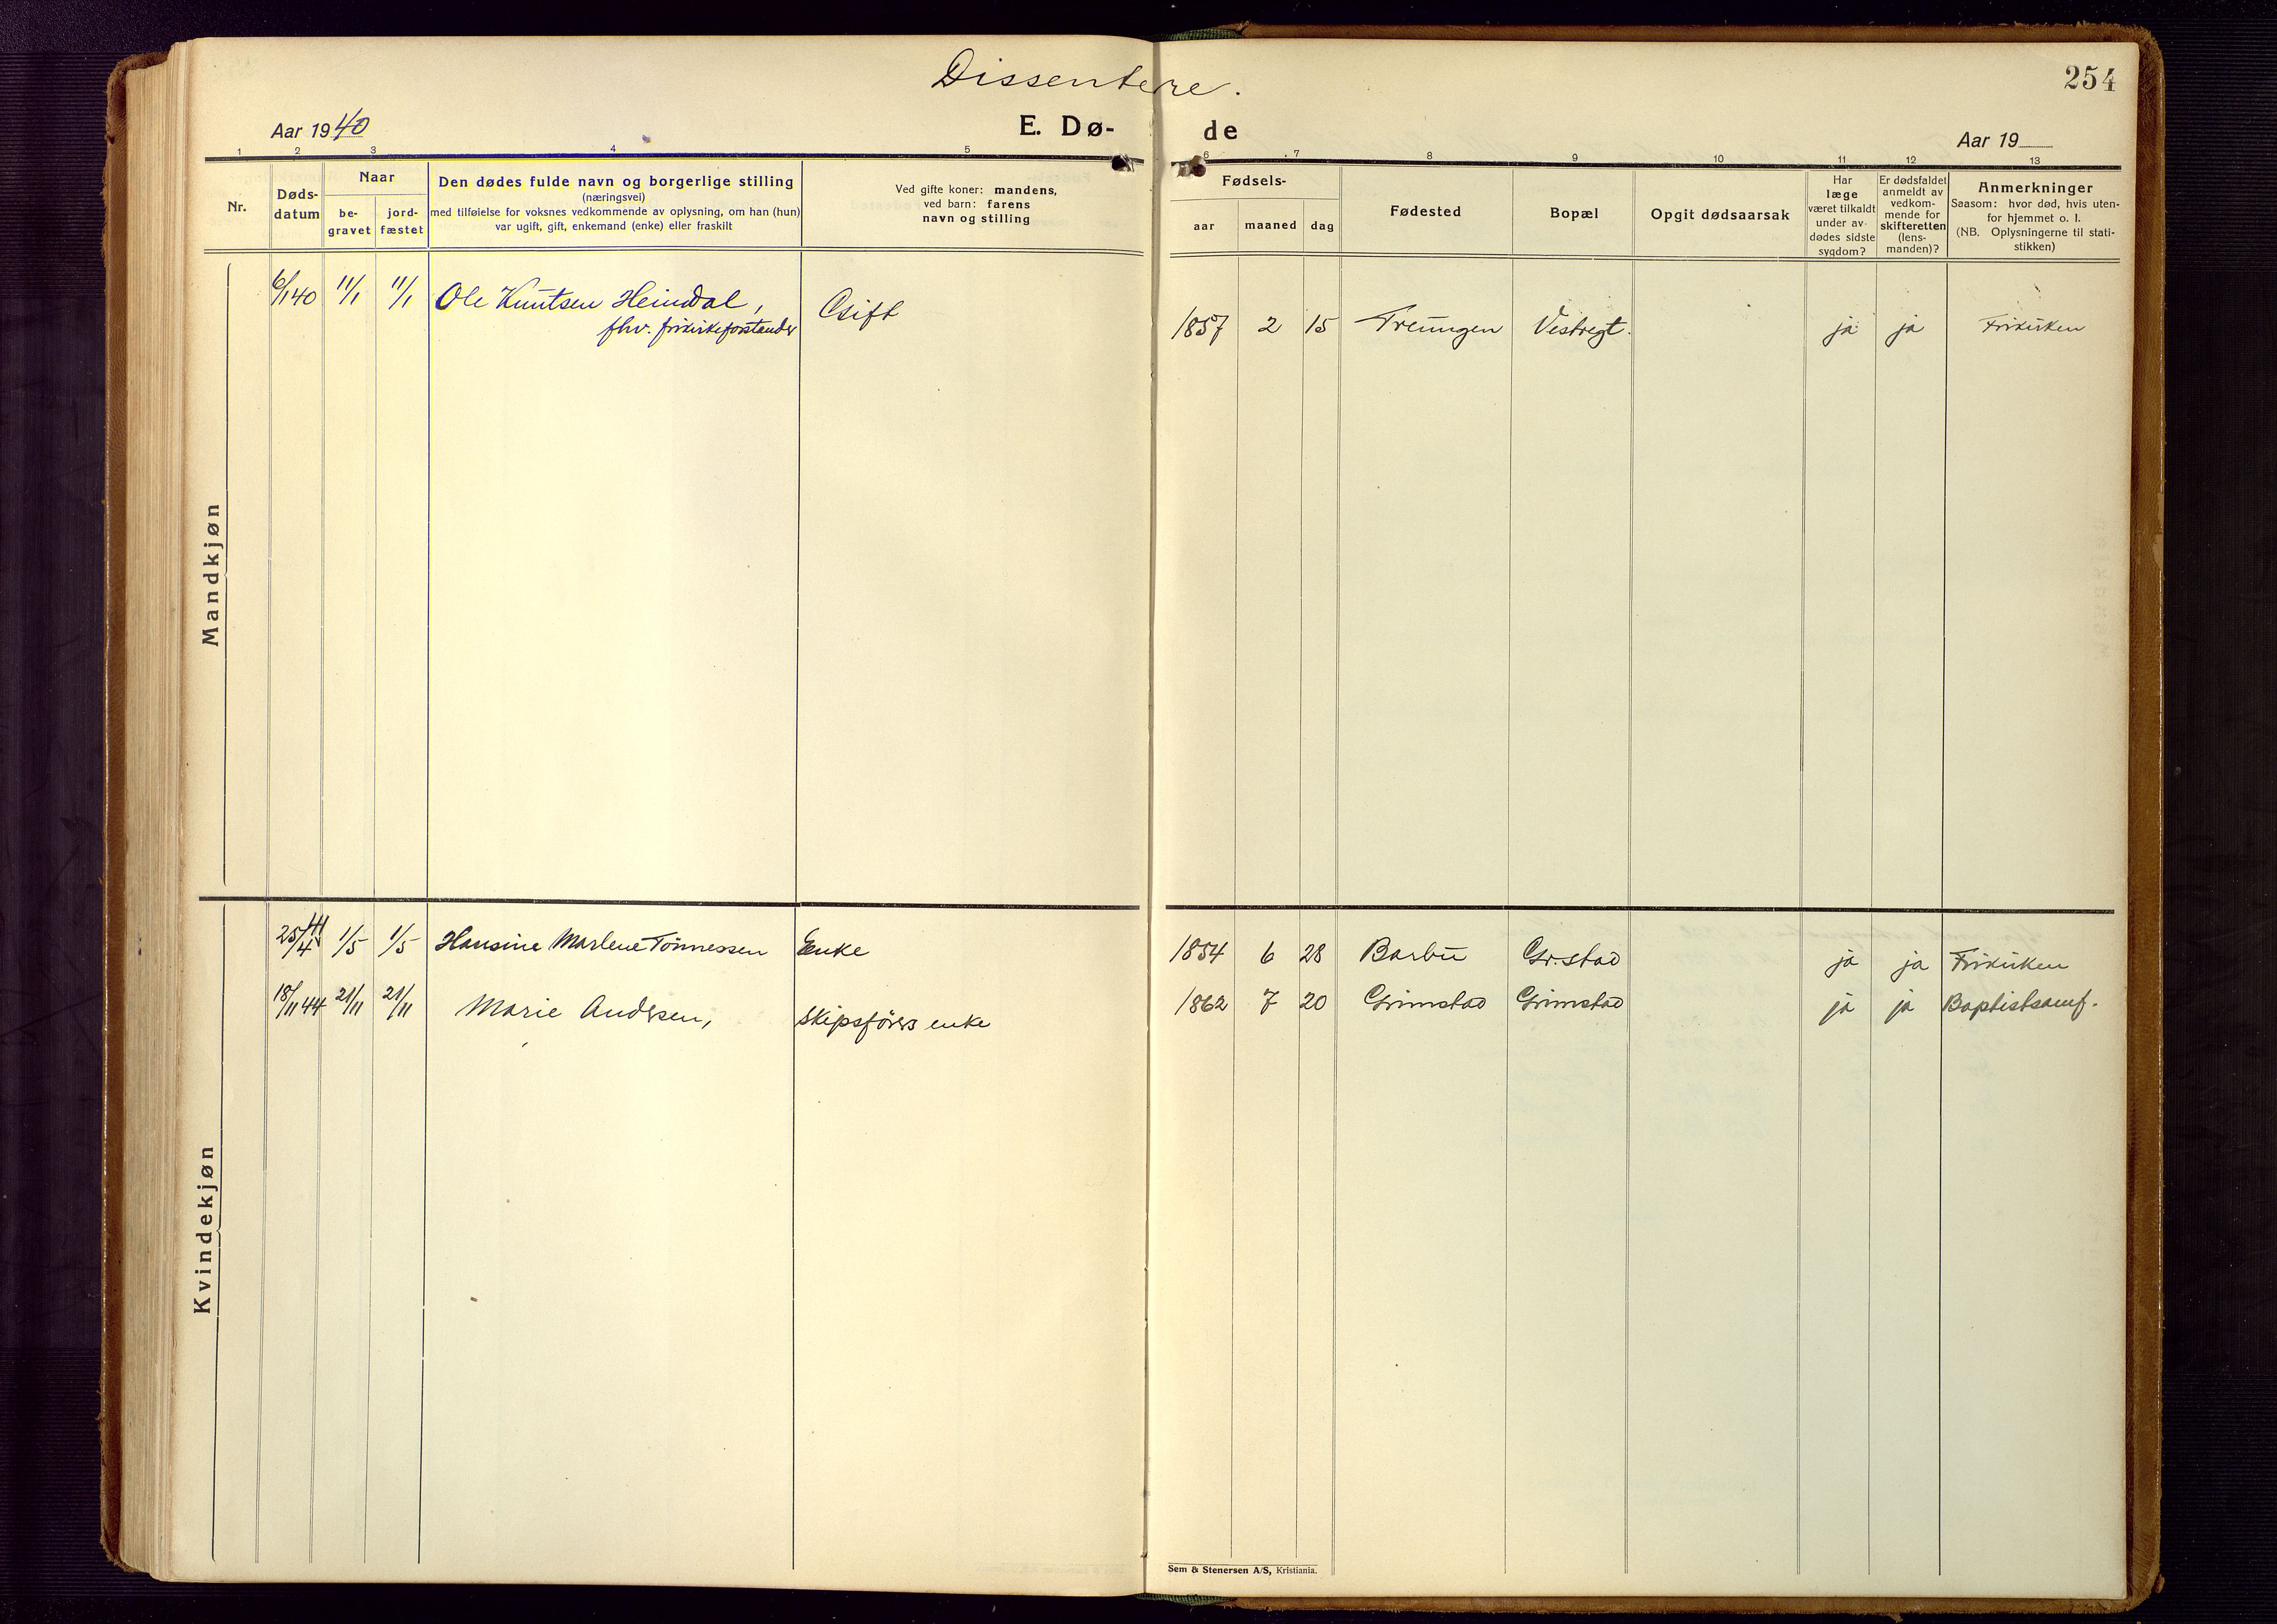 Dissentere.
254
Aar 1940
E. Dø-
de
Aar 19
1 2 3 4 5 6 7 8 9 10 11 12 13
Nr.
Døds-
datum
Naar
be-
gravet
jord-
fæstet
Den dødes fulde navn og borgerlige stilling
(næringsvei)
med tilføielse for voksnes vedkommende av oplysning, om han (hun)
var ugift, gift, enkemand (enke) eller fraskilt
Ved gifte koner: mandens,
ved barn: farens
navn og stilling
Fødsels-
aar maaned dag
Fødested
Bopæl
Opgit dødsaarsak
Har
læge
været tilkaldt
under av-
dødes sidste
sygdom?
Er dødsfaldet
anmeldt av
vedkom-
mende for
skifteretten
(lens-
manden)?
Anmerkninger
Saasom: hvor død, hvis uten-
for hjemmet o. l.
(NB. Oplysningerne til stati-
stikken)
Mandkjøn
6/1 40 11/1 11/1 Ole Knutsen Heimdal, Gift
fhv. frikirkeforstander
1857 2 15 Treungen Vestregt. ja ja Frikirken
Kvindekjøn
25/4 41 1/5 1/5 Hansine Marlene Tönnessen Enke 1854 6 28 Barbu Gr.stad ja ja Frikirken
18/11 44 21/11 21/11 Marie Andersen, skipsförers enke 1862 7 20 Grimstad Grimstad ja ja Baptistsamf.
Sem & Stenersen A/S, Kristiania.